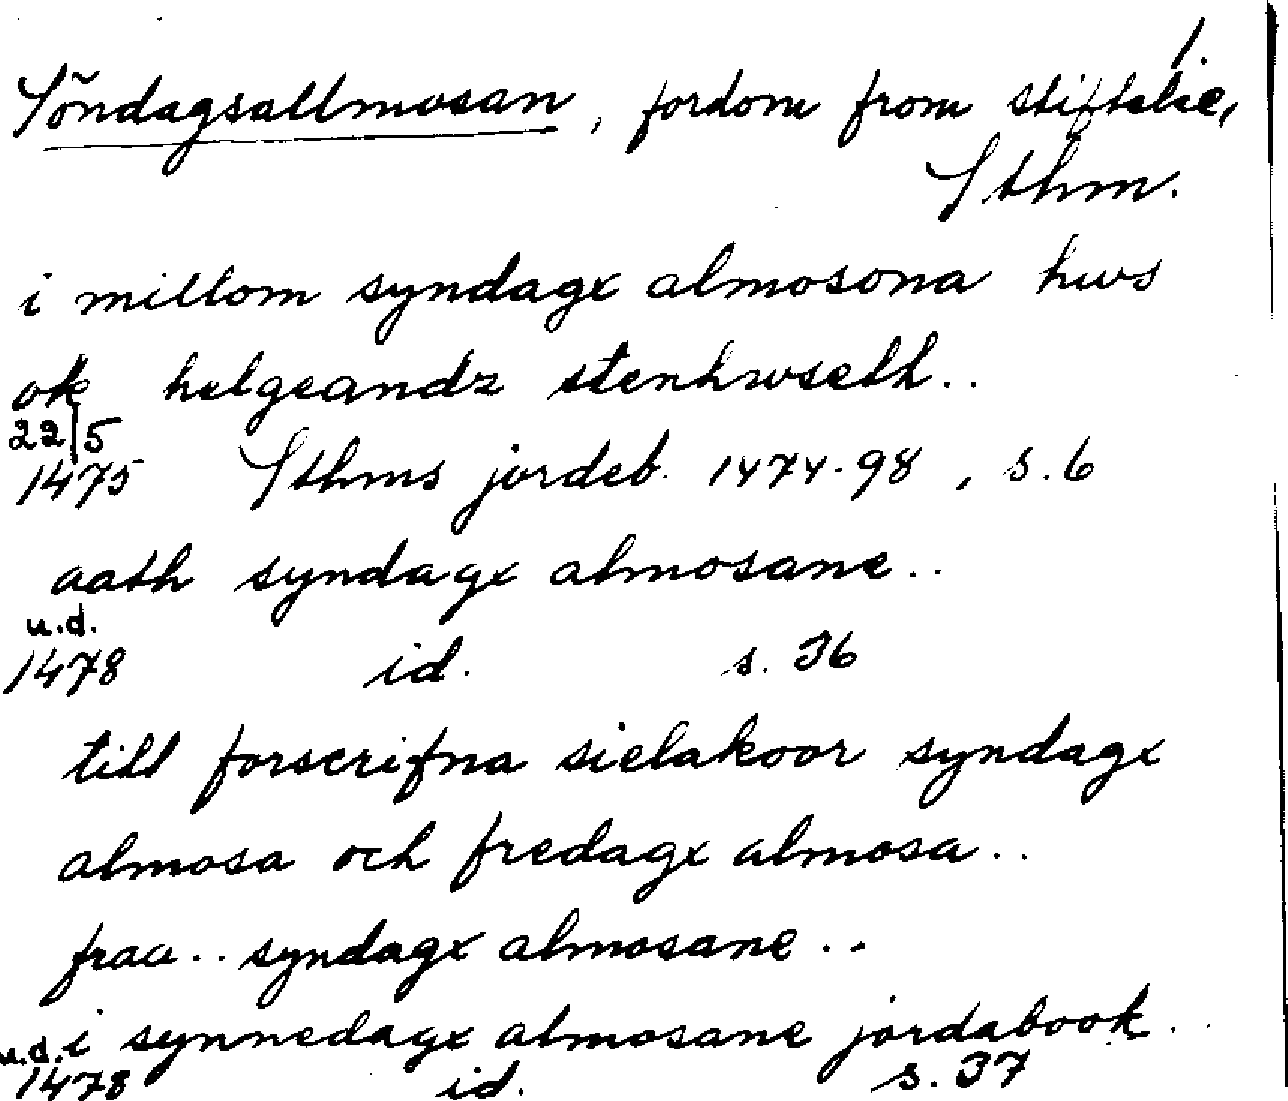 1.
Söndagsallmosan, fordom from stiftelse,
Sthm.
i millom syndagx almosona hws
ok helgeandz stenhwseth..
22/5
1475 Sthms jordeb. 1474-98, s. 6
aath syndagx almosane..
u.d.
1478 id. s. 36
till forscrifna sielakoor syndagx
almosa och fredagx almosa..
fraa.. syndagx almosane..
u.d. i synnedagx almosane jordabook..
1478 id. s. 37